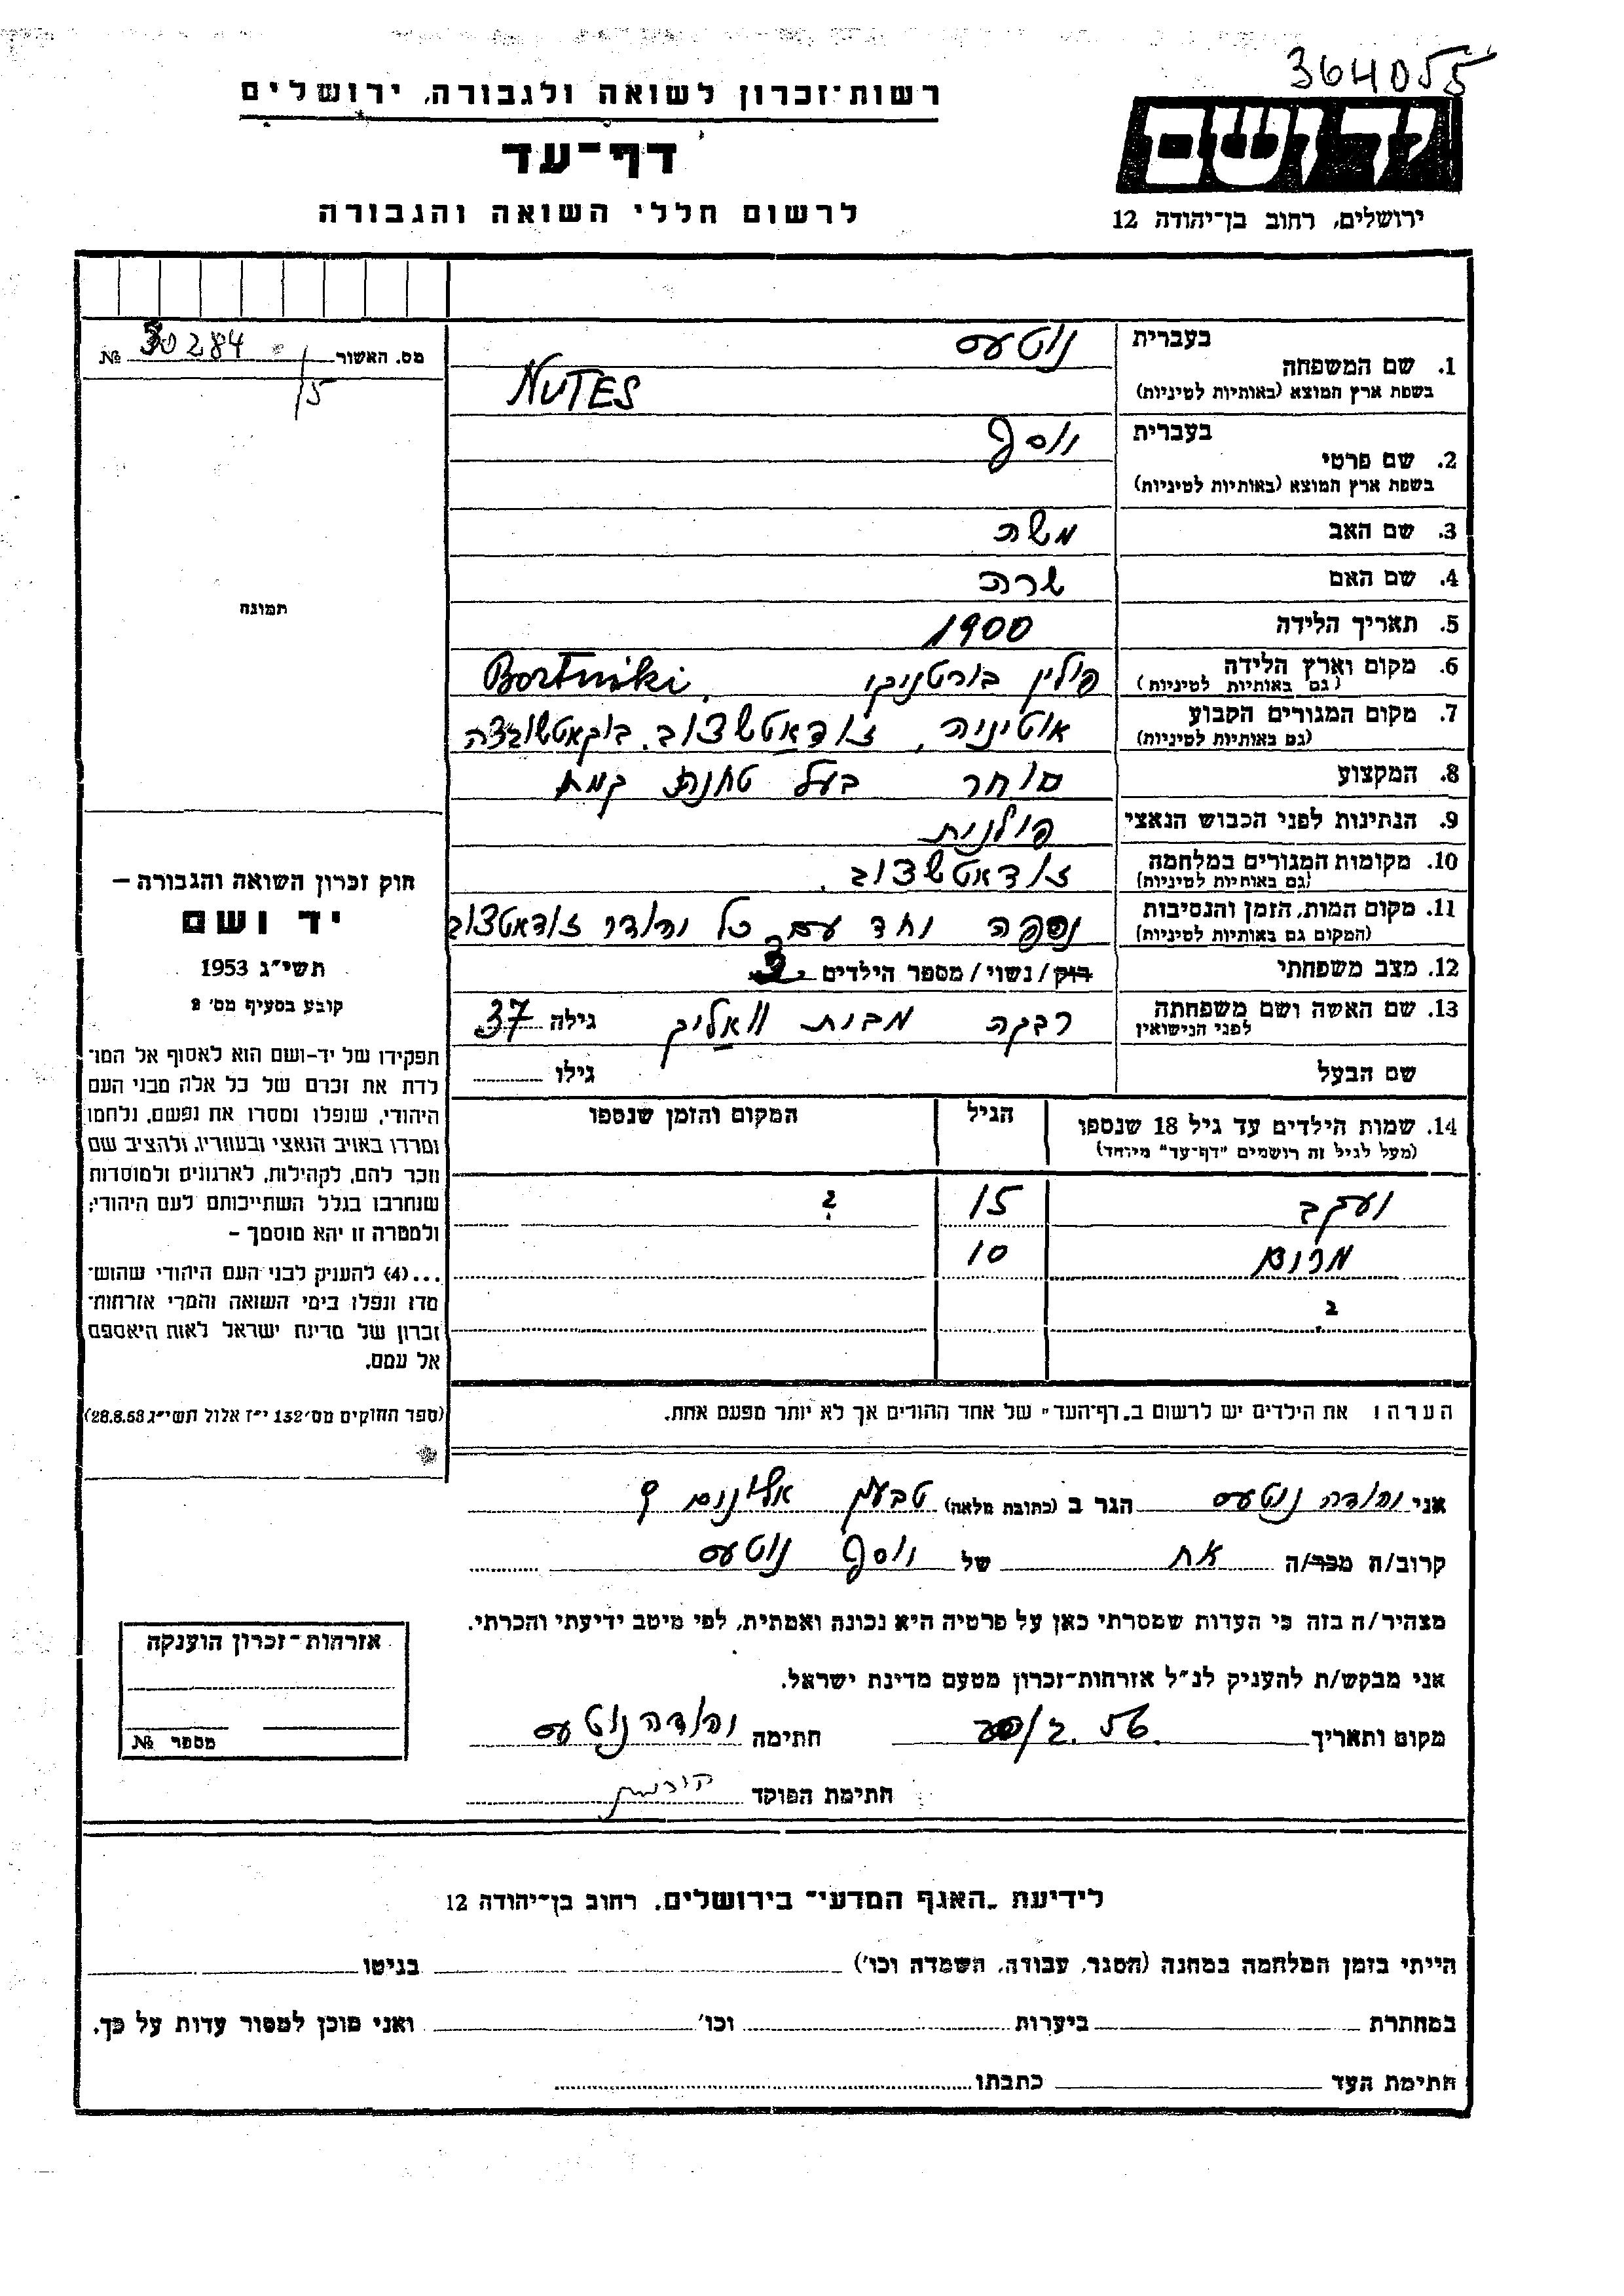 364055
רשות-זכרון לשואה ולגבורה, ירושלים
ידושם
דף-עד
לרשום חללי השואה והגבורה
ירושלים, רחוב בן-יהודה 12
מס. האשור 30284 №
15
תמונה
בעברית נוטעס
1. שם המשפחה
בשפת ארץ המוצא (באותיות לטיניות) NUTES
בעברית יוסף
2. שם פרטי
בשפת ארץ המוצא (באותיות לטיניות)
3. שם האב משה
4. שם האם שרה
5. תאריך הלידה 1900
6. מקום וארץ הלידה פולין בורטניקי, Bortniki
(גם באותיות לטיניות)
7. מקום המגורים הקבוע אוטיניה,
(גם באותיות לטיניות)
8. המקצוע סוחר בעל טחנת קמח
9. הנתינות לפני הכבוש הנאצי פולנית
10. מקומות המגורים במלחמה
(גם באותיות לטיניות)
11. מקום המות, הזמן והנסיבות נספה יחד עם כל יהודי
(המקום גם באותיות לטיניות)
12. מצב משפחתי רוק/נשוי/מספר הילדים 3
13. שם האשה ושם משפחתה רבקה מבית גילה 37
לפני הנישואין
שם הבעל גילו
14. שמות הילדים עד גיל 18 שנספו הגיל המקום והזמן שנספו
(מעל לגיל זה רושמים "דף-עד" מיוחד)
יעקב 15 ?
מרים 10
?
הערה: את הילדים יש לרשום ב„דף-העד" של אחד ההורים אך לא יותר מפעם אחת.
חוק זכרון השואה והגבורה –
יד ושם
תשי"ג 1953
קובע בסעיף מס' 2
תפקידו של יד-ושם הוא לאסוף אל המו-
לדת את זכרם של כל אלה מבני העם
היהודי, שנפלו ומסרו את נפשם, נלחמו
ומרדו באויב הנאצי ובעוזריו, ולהציב שם
וזכר להם, לקהילות, לארגונים ולמוסדות
שנחרבו בגלל השתייכותם לעם היהודי;
ולמטרה זו יהא מוסמך –
...(4) להעניק לבני העם היהודי שהוש-
מדו ונפלו בימי השואה והמרי אזרחות-
זכרון של מדינת ישראל לאות היאספם
אל עמם.
(ספר החוקים מס' 132 י"ז אלול תשי"ג 28.8.53)
אני יהודה נוטעס הגר ב (כתובת מלאה) טבעון
קרוב/ה מכר/ה אח של יוסף נוטעס
מצהיר/ה בזה כי העדות שמסרתי כאן על פרטיה היא נכונה ואמתית, לפי מיטב ידיעתי והכרתי.
אני מבקש/ת להעניק לנ"ל אזרחות-זכרון מטעם מדינת ישראל.
מקום ותאריך 2.56 חתימה יהודה נוטעס
חתימת הפוקד
אזרחות-זכרון הוענקה
מספר №
לידיעת „האגף המדעי" בירושלים, רחוב בן-יהודה 12
הייתי בזמן המלחמה במחנה (הסגר, עבודה, השמדה וכו') בגיטו
במחתרת ביערות וכו' ואני מוכן למסור עדות על כך.
חתימת העד כתבתו